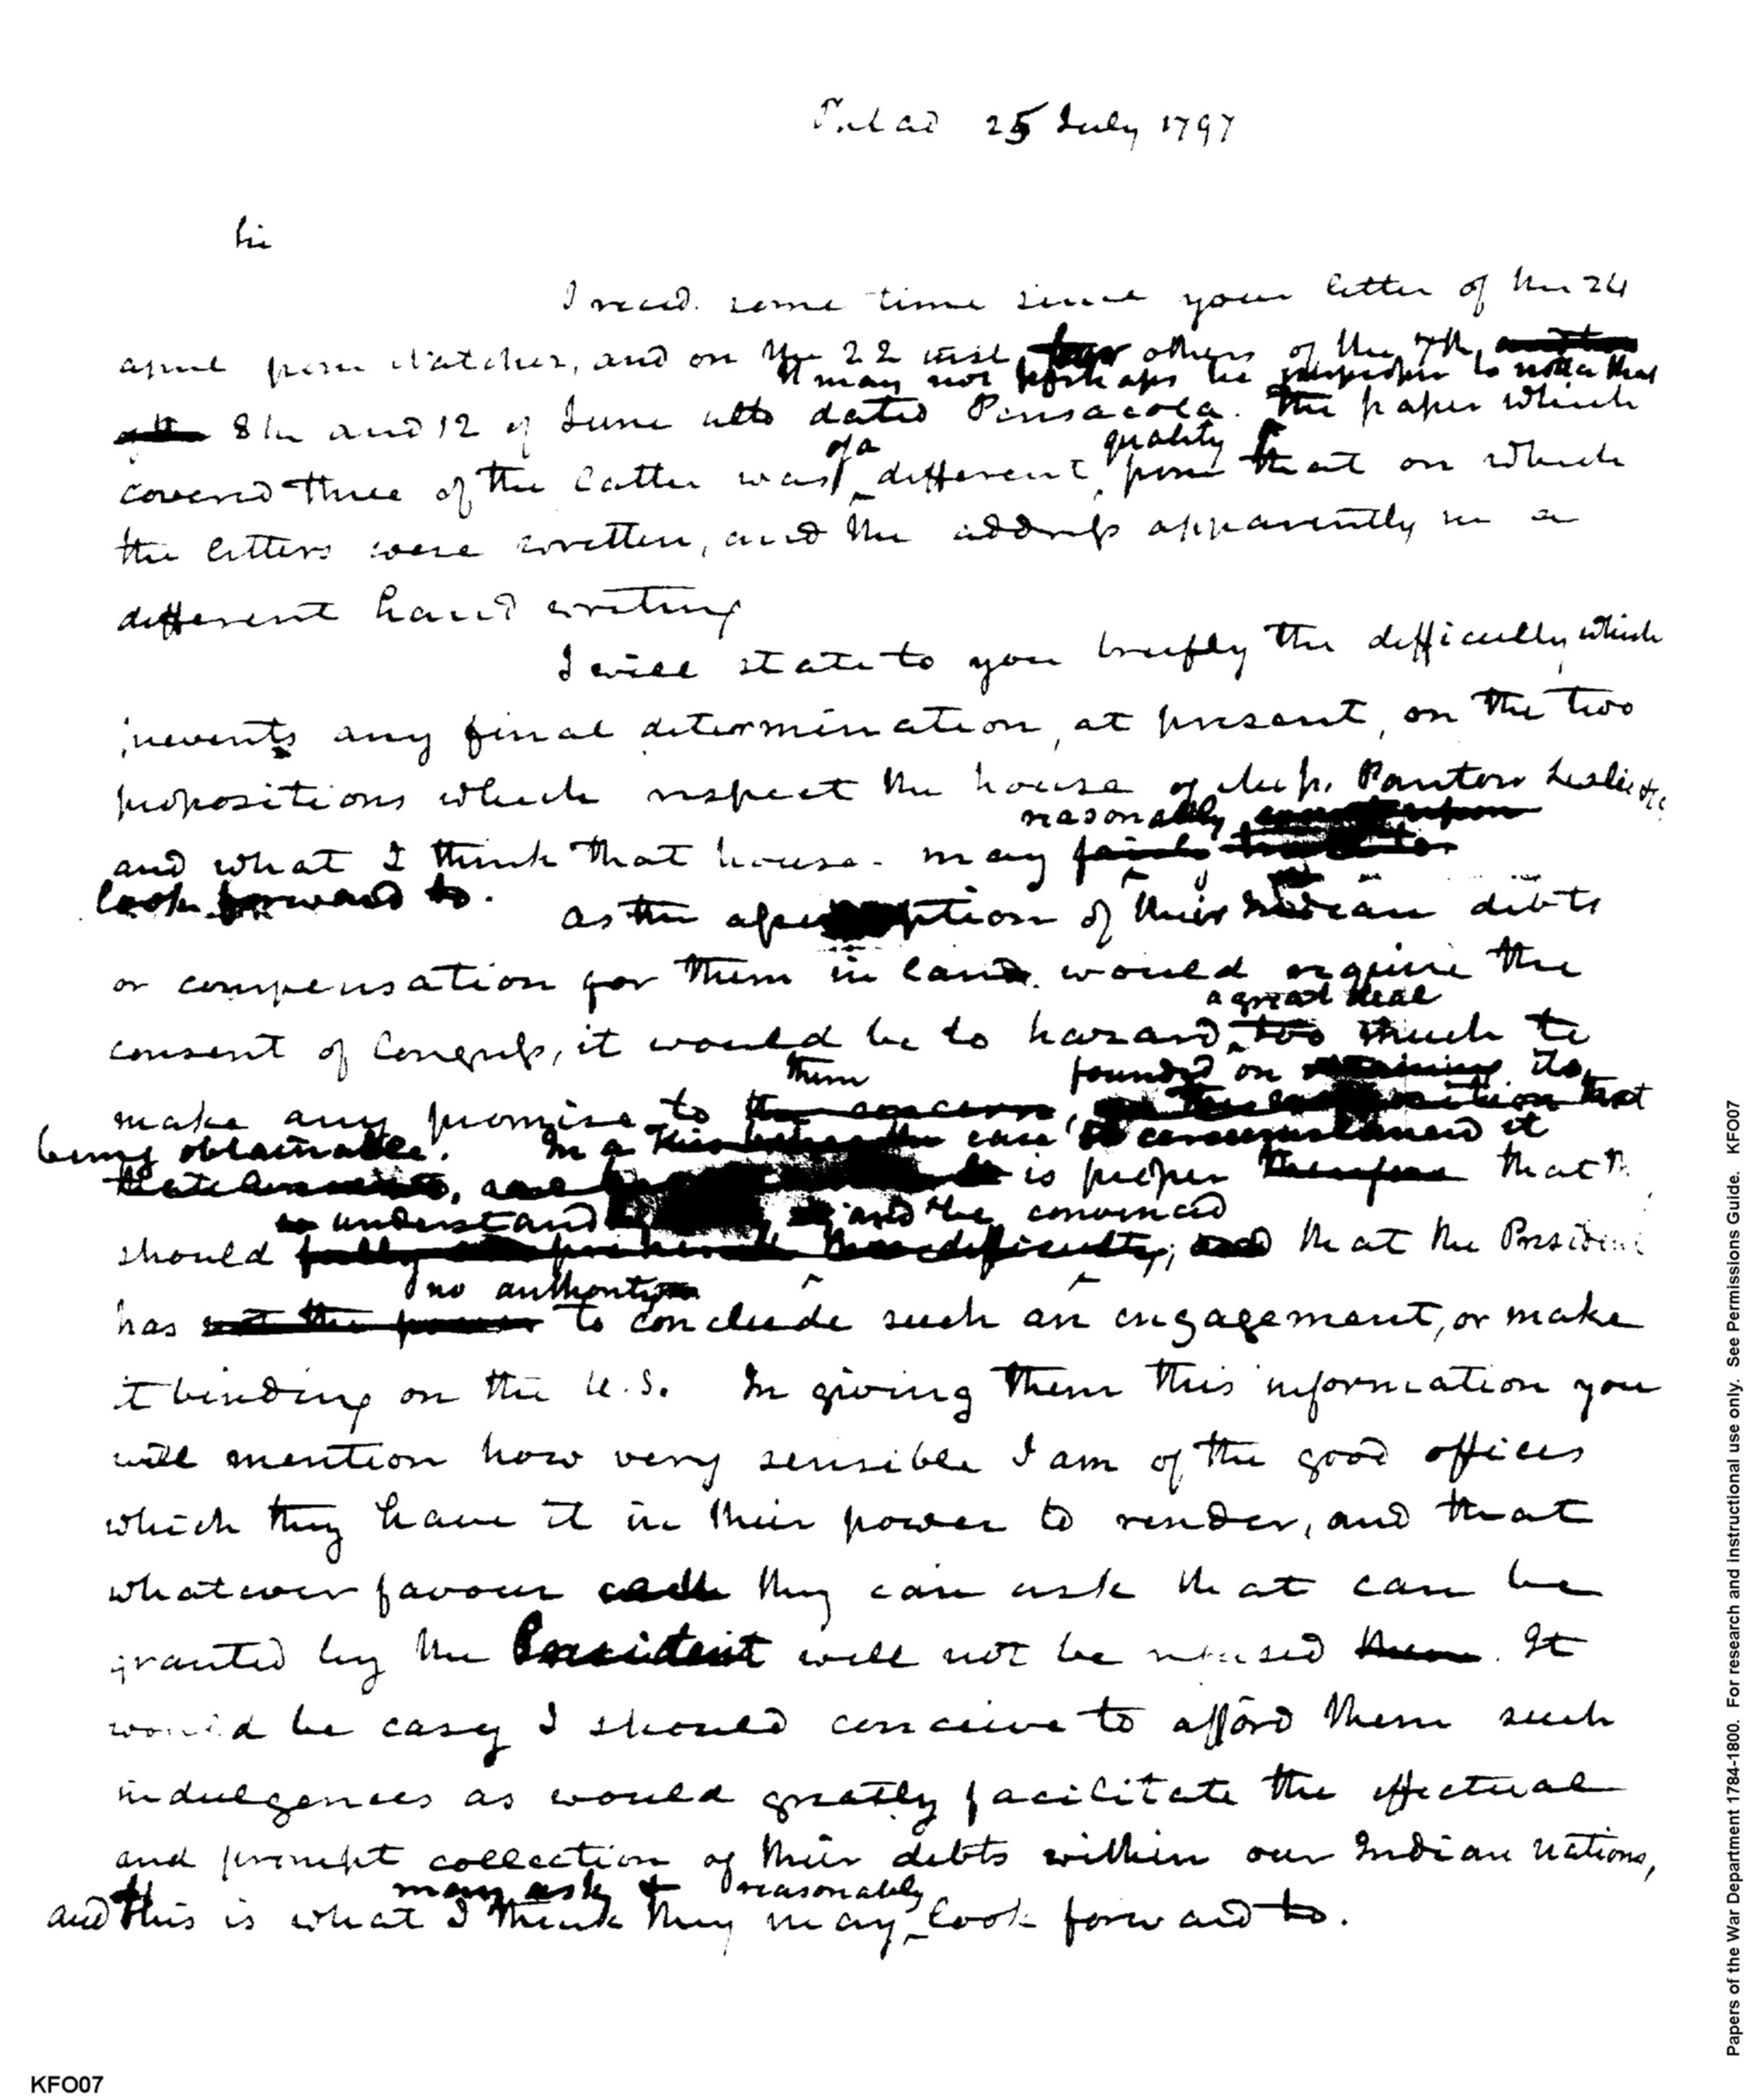 Philad 25 July 1797
Sir
I recd. some time since your letter of the 24
april from Natches, and on the 22 inst four others of the 7th,
It may not perhaps be improper to notice that
8th and 12 of June ulto dated Pensacola. The paper which
of a quality
covered three of the latter was different from that on which
the letters were written, and the address apparently in a
different hand writing
I will state to you briefly the difficulty which
prevents any final determination, at present, on the two
propositions which respect the house of Messrs. Panton Leslie &c
reasonally upon
and what I think that house may fairly
look forward to. as the assumption of their Indian debts
or compensation for them in land would require the
a great deal
consent of Congress, it would be to hazard too much to
them founded on its
make any promise to the concern, that
being obtainable. In a case so circumstanced it
is proper therefore that th
to understand and be convinced
should fully comprehend the difficulty; and that the President
no authority
has not the power to conclude such an engagement, or make
it binding on the U.S. In giving them this information you
will mention how very sensible I am of the good offices
which they have it in their power to render, and that
whatever favour they can ask that can be
granted by the President will not be refused them. It
would be easy I should conceive to afford them such
indulgences as would greatly facilitate the effectual
and prompt collection of their debts within our Indian nations,
may ask & reasonably
and this is what I think they may look forward to.
Papers of the War Department 1784-1800. For research and instructional use only. See Permissions Guide. KFO07
KFO07